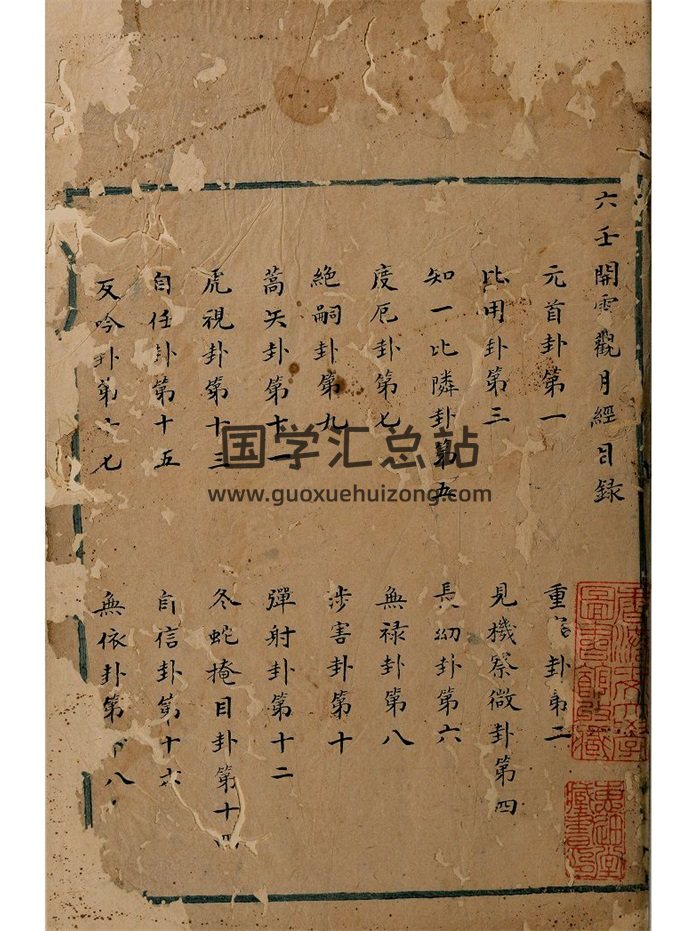 六壬開雲觀月經目録
元首卦第一
重審卦第二
比用卦第三
見機察微卦第四
知一比隣卦第五
長幼卦第六
度厄卦第七
無禄卦第八
絶嗣卦第九
涉害卦第十
蒿矢卦第十一
彈射卦第十二
虎視卦第十三
冬蛇掩目卦第十四
自任卦第十五
自信卦第十六
反吟卦第十七
無依卦第十八
国学汇总站
www.guoxuehuizong.com